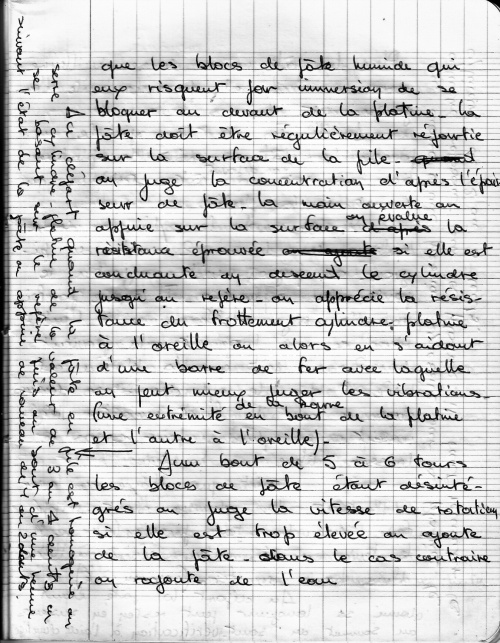 que les blocs de pâte humide qui
eux risquent par immersion de se
bloquer au devant de la platine - la
pâte doit être régulièrement répartie
sur la surface de la pile -
on juge la concentration d'après l'épais
seur de pâte - la main ouverte on
appuie sur la surface on évalue la
résistance éprouvée si elle est
concluante on descend le cylindre
jusqu'au repère - on apprécie la résis-
tance du frottement cylindre, platine
à l'oreille ou alors en s'aidant
d'une barre de fer avec laquelle
on peut mieux juger les vibrations -
(une extrémité de la barre en bout de la platine
et l'autre à l'oreille) -
Au bout de 5 à 6 tours
les blocs de pâte étant désinté-
grés on juge la vitesse de rotation
si elle est trop élevée on ajoute
de la pâte - dans le cas contraire
on rajoute de l'eau
Au départ quand la pâte en pile est homogène on
serre cylindre - platine de la valeur de 3 en
se basant sur le repère puis au
suivant l'état de la pâte on appuie de nouveau de 1 ou 2 dents.